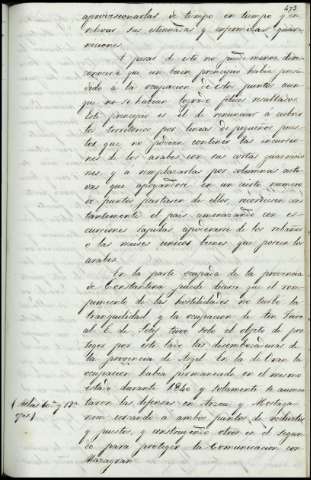 273
aprovisionarlas de tiempo en tiempo y en
relevar sus estenuadas y enfermizas guar
niciones.
A pesar de esto no puede menos de re
conocerse que un buen principio habia presi
dido a la ocupacion de estos puntos aun
que no se hubiesen logrado felices resultados.
Este principio es el de renunciar a cubrir
los territorios por lineas de pequeños pues
tos que no pueden contener las incursio
nes de los arabes con sus cortas guarnicio
nes y a remplazarlas por columnas acti
vas que apoyandose en un cierto numero
de puntos partiesen de ellos, recorriesen cons
tantemente el pais amenazando con es
cursiones rapidas, apoderarse de los rebaños
o las mieses unicos bienes que poseen los
arabes.
En la parte ocupada de la provincia
de Constantina puede decirse que el rom
pimiento de las hostilidades no turbó la
tranquilidad y la ocupacion de
al E. de tuvo solo el objeto de pro
teger por este lado las desembocaduras de
la provincia de Argel. En la de Oran la
ocupacion habia permanecido en el mismo
estado durante 1840 y solamente se aumen
taron las defensas en Arzeu y Mostaga
nem cerrando a ambos puntos de reductos
y puestos, y construyendo otros en el segun
do para proteger la comunicacion con
Mazagran.